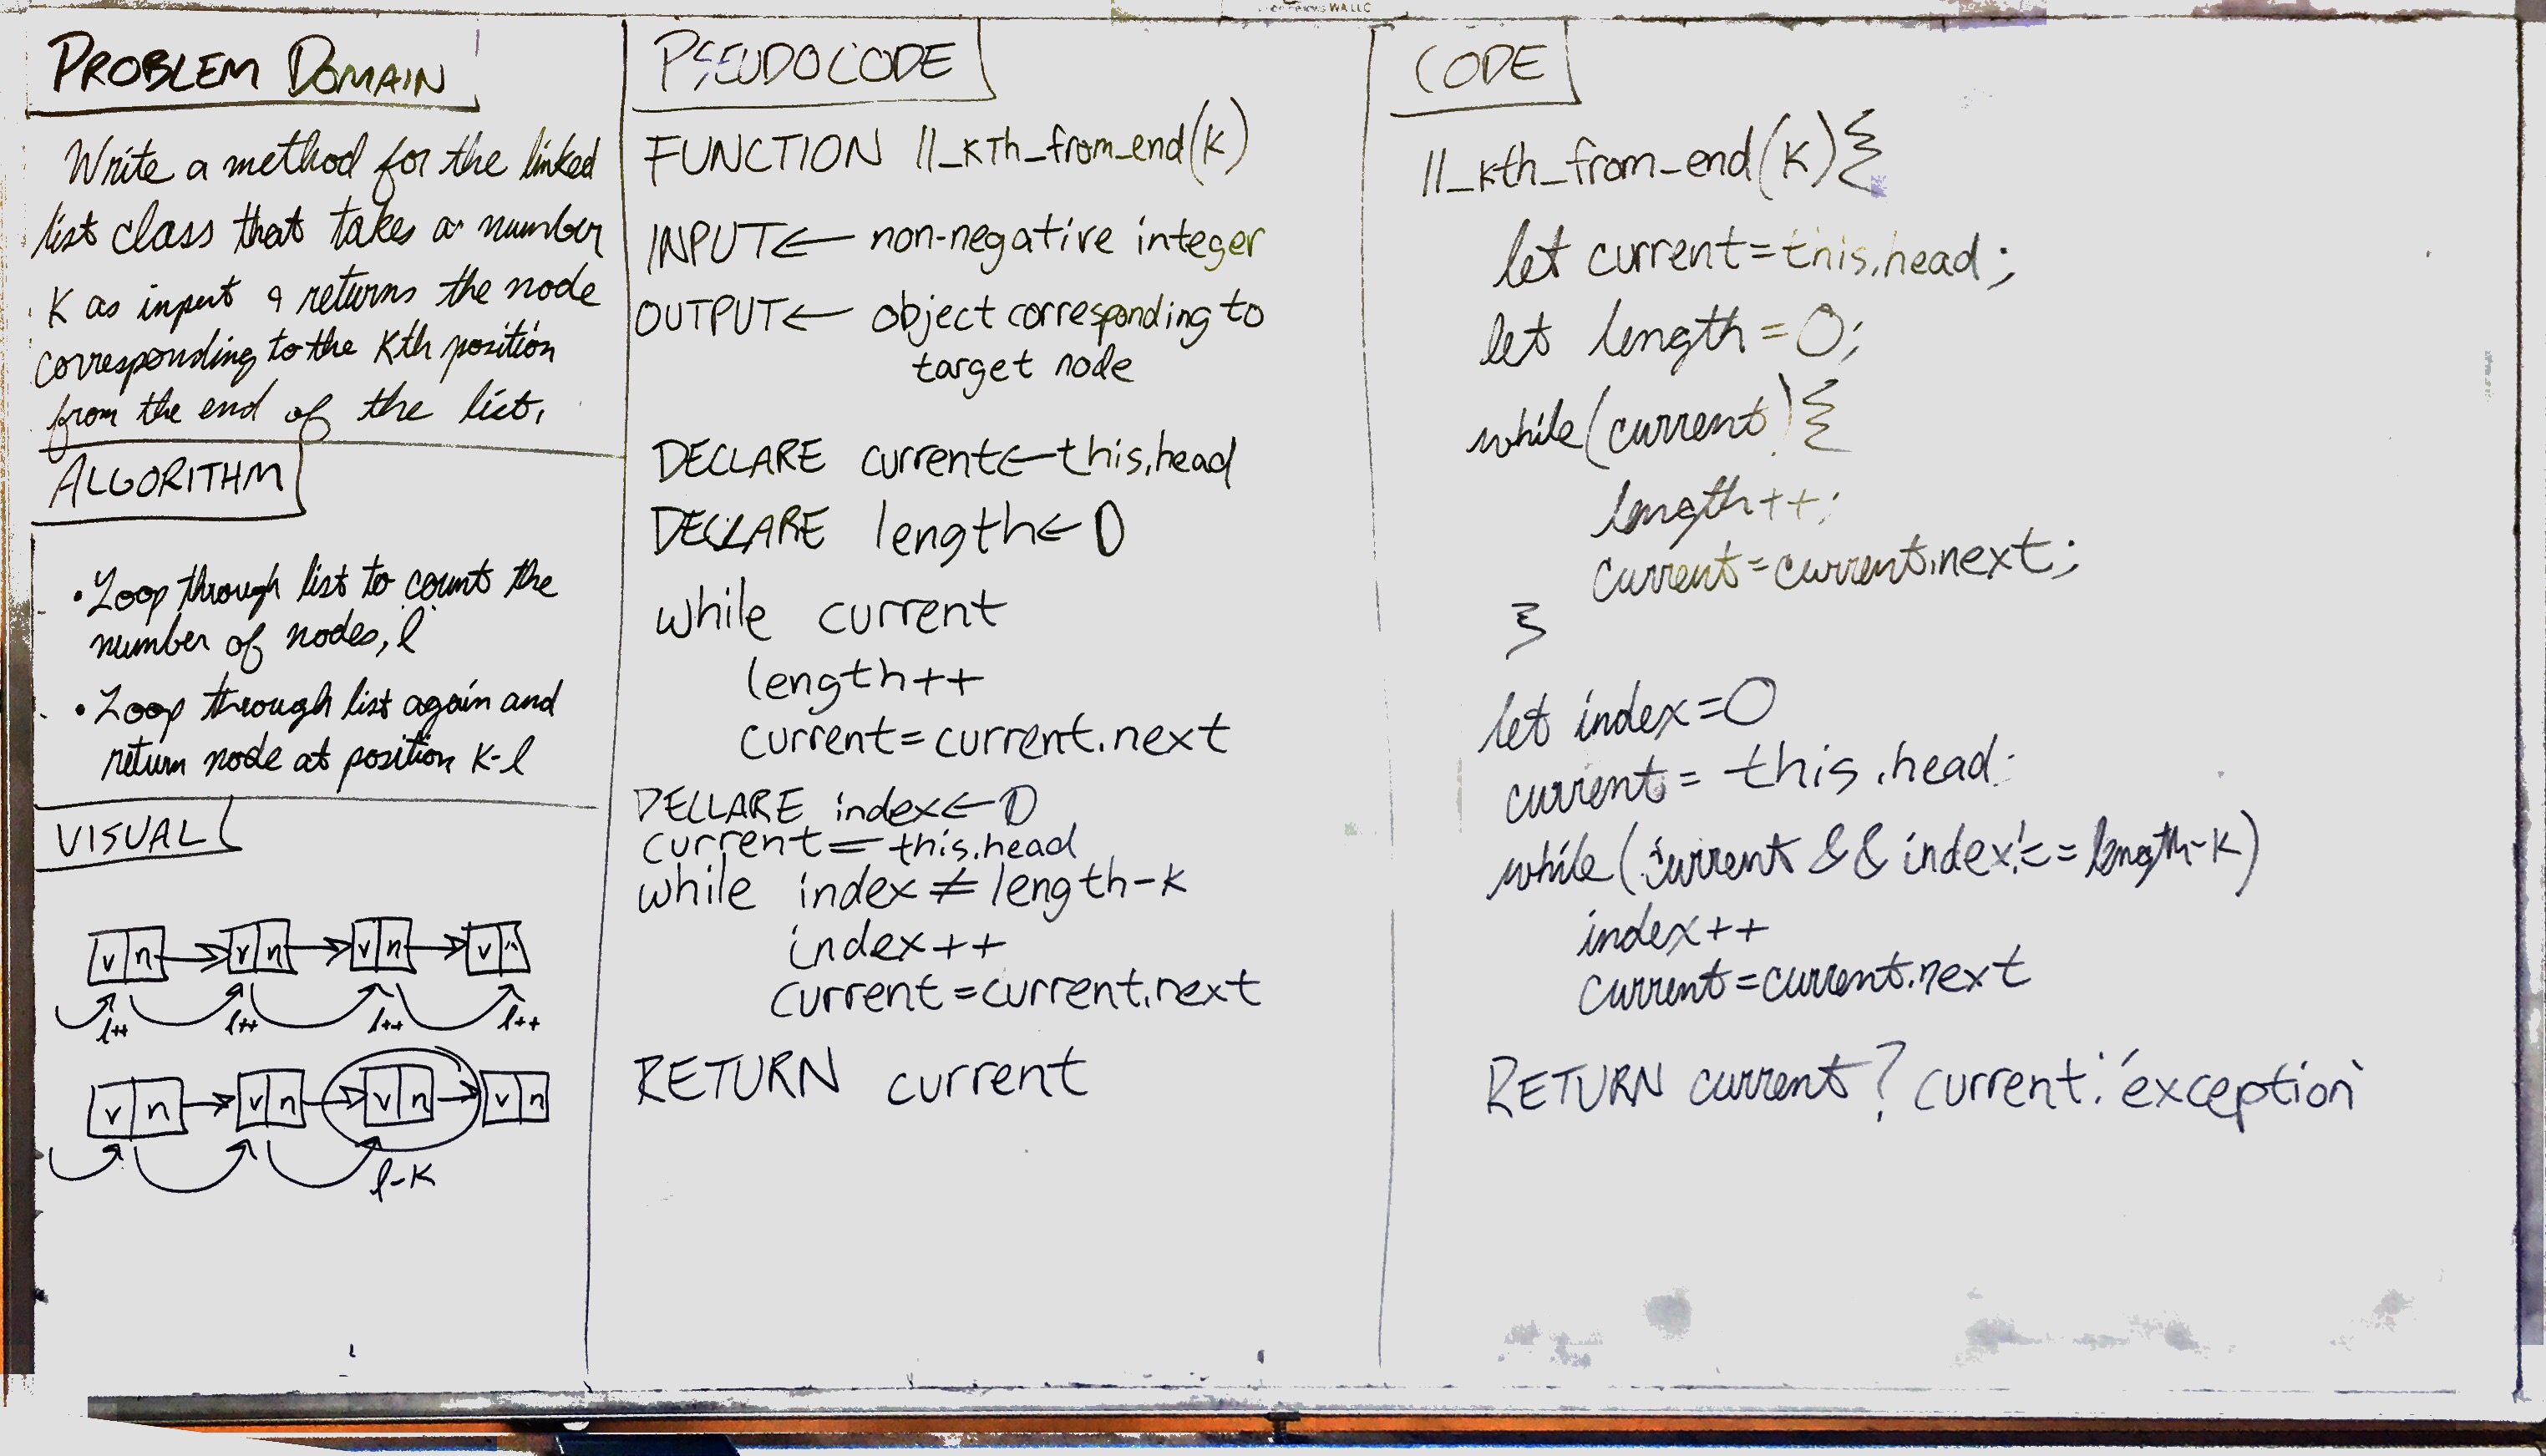 PROBLEM DOMAIN
Write a method for the linked
list class that takes a number
K as input & returns the node
corresponding to the Kth position
from the end of the list.
ALGORITHM
• Loop through list to count the
number of nodes, l
• Loop through list again and
return node at position K-l
VISUAL
v n v n v n v
l++ l++ l++ l++
v n v n v n v n
l-K
PSEUDOCODE
FUNCTION ll_KTh_from_end(K)
INPUT← non-negative integer
OUTPUT← object corresponding to
target node
DECLARE current←this.head
DECLARE length←0
while current
length++
current=current.next
DECLARE index←0
current=this.head
while index≠length-K
index++
current=current.next
RETURN current
CODE
ll_kth_from_end(K){
let current=this.head;
let length=0;
while(current){
length++;
current=current.next;
}
let index=0
current= this.head;
while(current && index!==length-K)
index++
current=current.next
RETURN current? current:'exception'